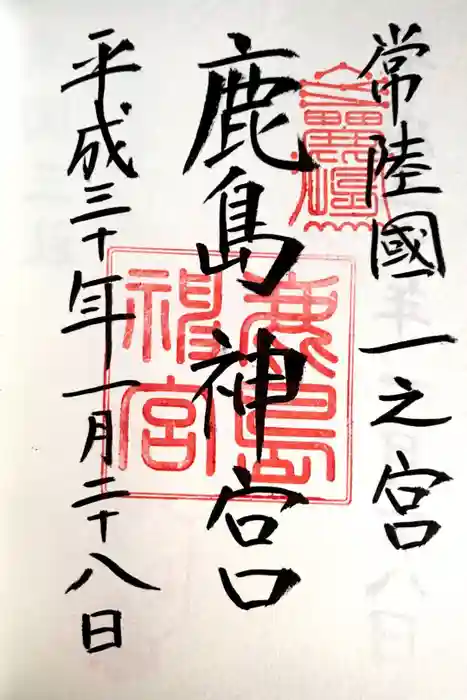 常陸國一之宮
鹿島神宮
鹿島神宮
平成三十年一月二十八日